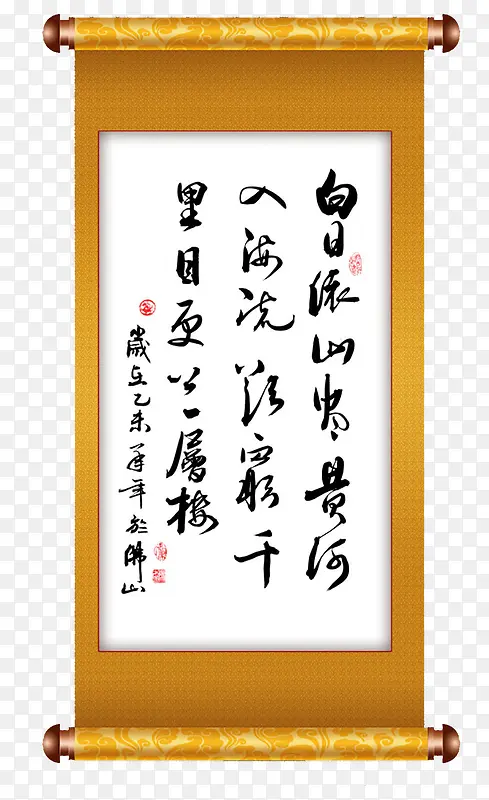 白日依山尽黄河
入海流欲窮千
里目更上一層楼
歲在乙未羊年於佛山